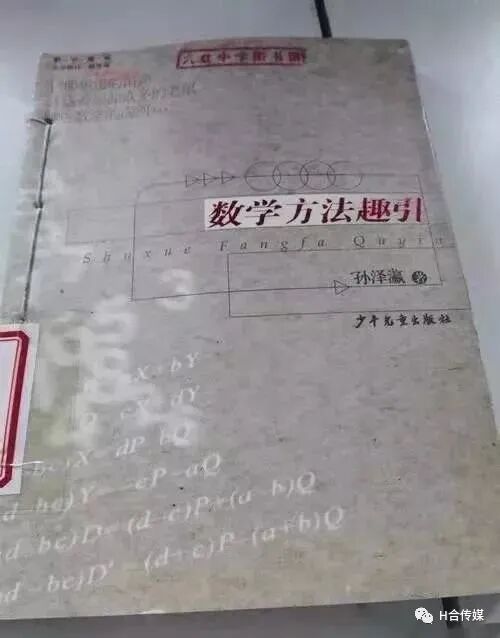 六中学图书馆
数学方法趣引
Shuxue Fangfa Quyin
孙泽瀛 著
少年儿童出版社
X+bY
X+dY
bc)X=dP-bQ
d-bc)Y=-cP-aQ
ad-bc)D=(d-c)P+(a-b)Q
ad-bc)D'=(d+c)P-(a+b)Q
H合传媒